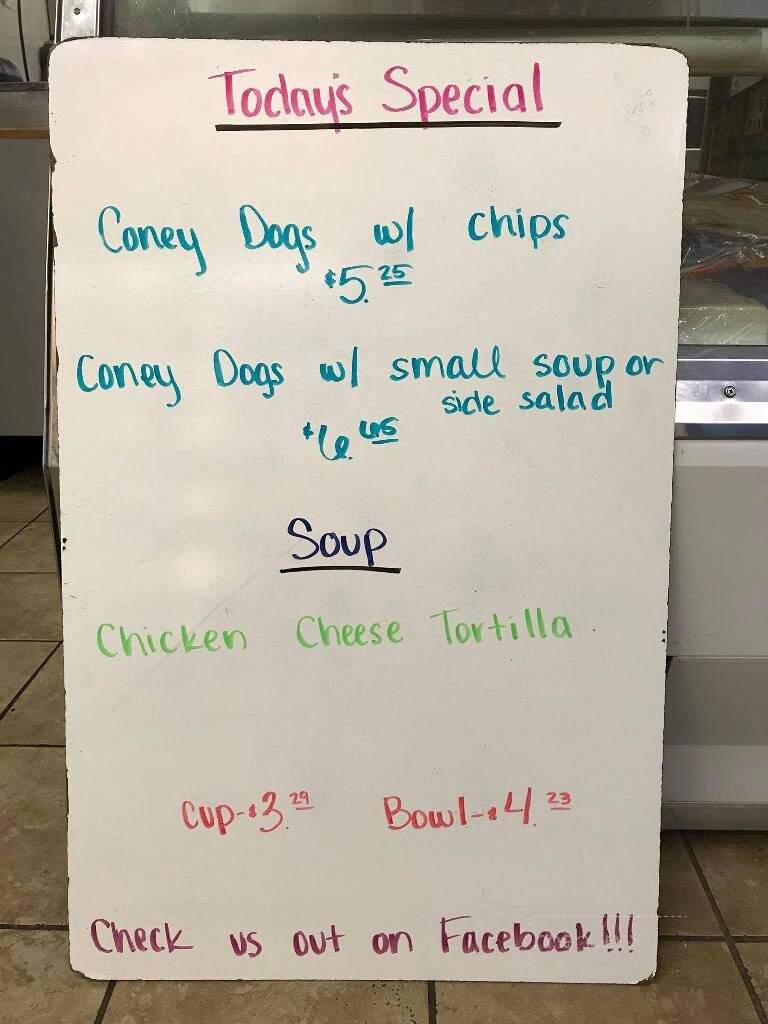 Today's Special
Coney Dogs w/ chips
$5.25
Coney Dogs w/ small soup or
side salad
$6.65
Soup
Chicken Cheese Tortilla
Cup-$3.29 Bowl-$4.23
Check us out on Facebook!!!